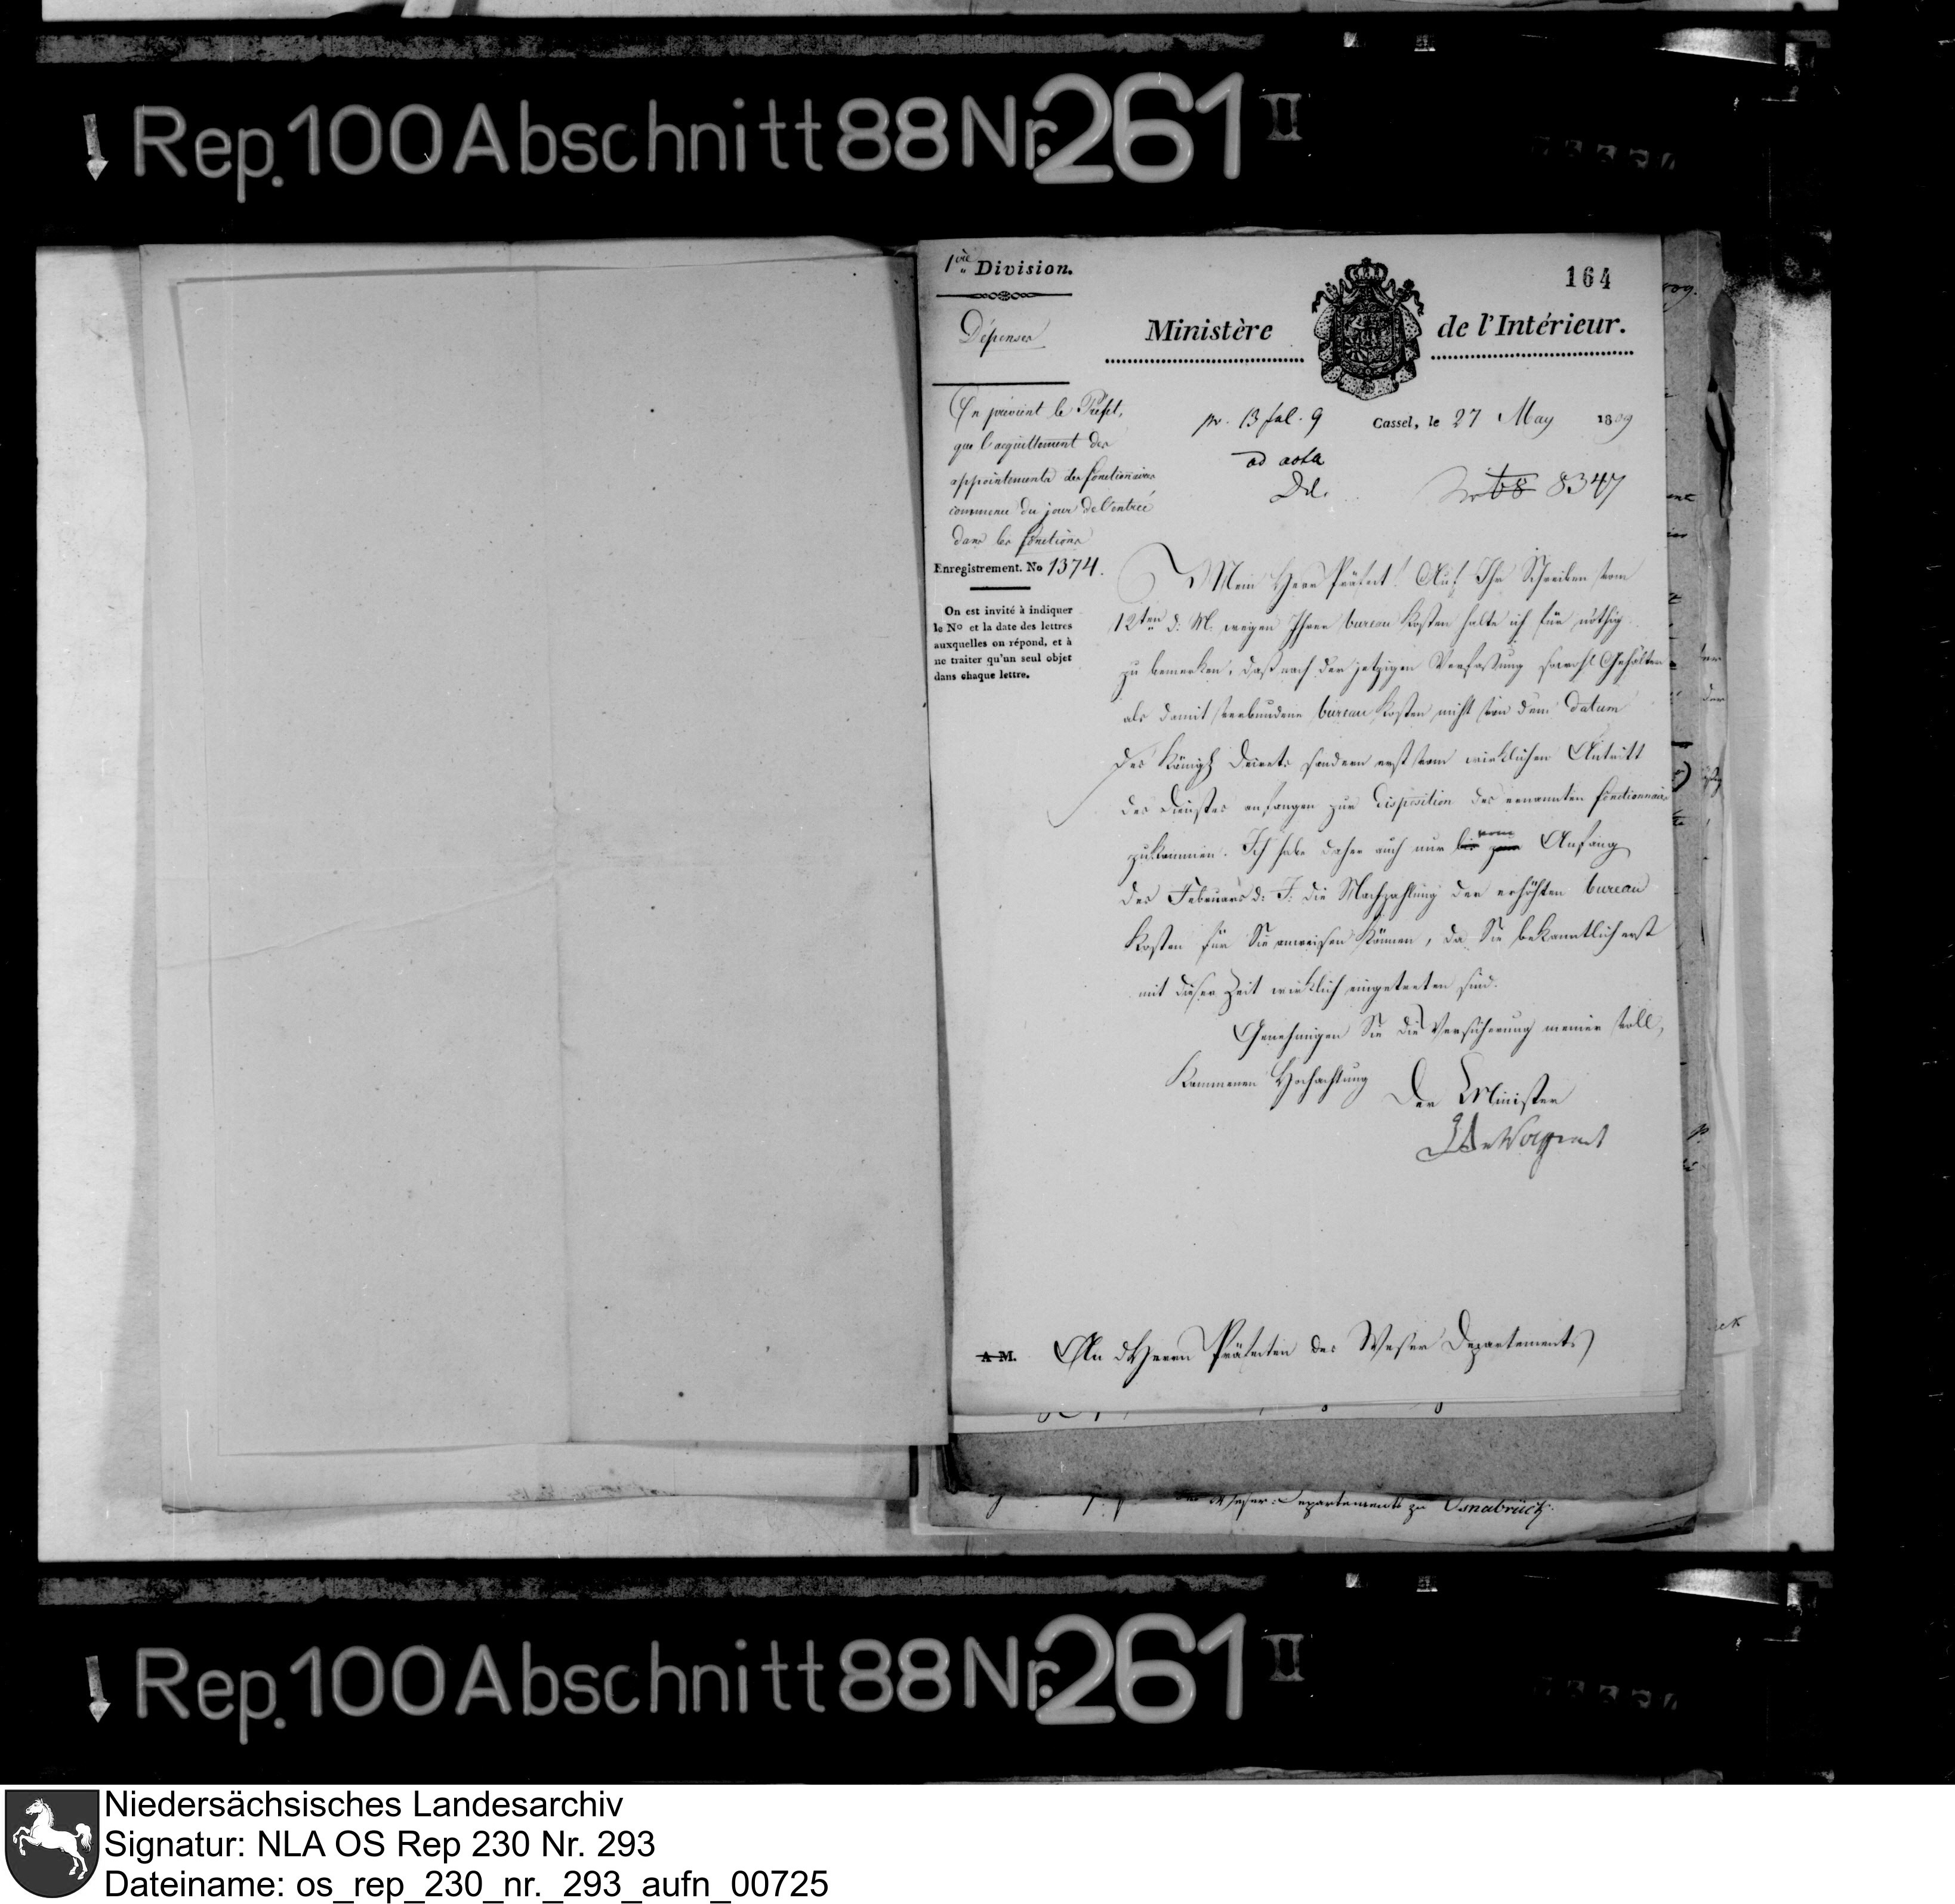 Rep. 100 Abschnitt 88 Nr. 261 II
1ère Division.
Dépenses
164
Ministère de l'Intérieur.
On prévient le Préfet,
que l'acquittement des
appointements des fonctionnaires
commence du jour de l'entrée
dans les fonctions
Enregistrement. No 1374.
On est invité à indiquer
le No et la date des lettres
auxquelles on répond, et à
ne traiter qu'un seul objet
dans chaque lettre.
pr. 13 Jul. 9
Cassel, le 27 May 1809
ad acta
8347
Mein Herr Präfect! Auf Ihr Schreiben vom
12ten d. M. wegen Ihrer bureau Kosten halte ich für nöthig
zu bemerken, daß nach der jetzigen Verfassung sowohl Gehälter
als damit verbundene bureau Kosten nicht von dem datum
des Königl. Decrets sondern erst vom wirklichen Antritt
des Dienstes anfangen zur disposition des ernannten fonctionnairs
zukommen. Ich habe daher auch nur vom Anfang
des Februars d. J. die Nachzahlung der erhöhten bureau
Kosten für Sie anweisen können, da Sie bekanntlich erst
mit dieser Zeit wirklich eingetreten sind.
Genehmigen Sie die Versicherung meiner voll,
kommenen Hochachtung
Der Minister
A M.
An den Herrn Präfecten des Weser Departements
Weser-Departements zu Osnabrück.
Rep. 100 Abschnitt 88 Nr. 261 II
Niedersächsisches Landesarchiv
Signatur: NLA OS Rep 230 Nr. 293
Dateiname: os_rep_230_nr._293_aufn_00725